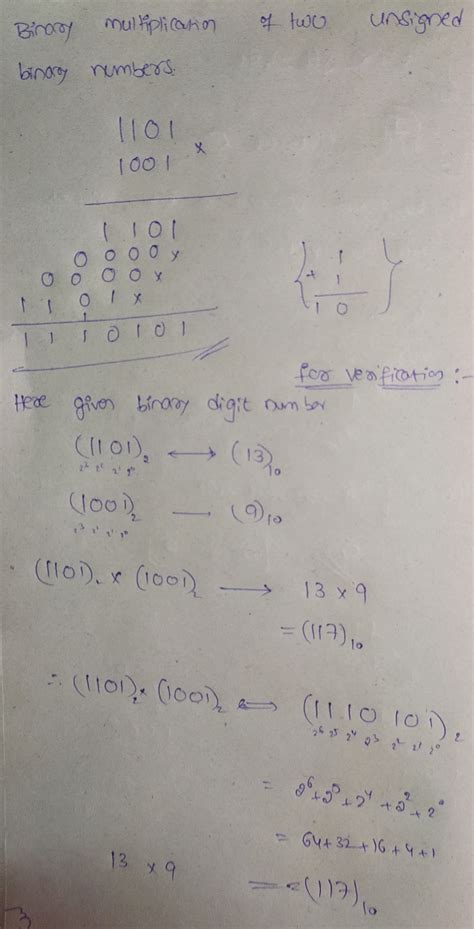 Binary multiplication of two unsigned
binary numbers.
1101
1001 ×
1 1 0 1
0 0 0 0 ×
0 0 0 0 ×
1 1 0 1 ×
1
1 1 1 0 1 0 1
{ 1
+ 1 }
1 0
for verification :-
Here given binary digit number
(1101)₂ ⟷ (13)₁₀
2³ 2² 2¹ 2⁰
(1001)₂ — (9)₁₀
2³ 2² 2¹ 2⁰
(1101)₂ × (1001)₂ ⟶ 13 × 9
= (117)₁₀
∴ (1101)₂ × (1001)₂ ⟺ (1110101)₂
2⁶ 2⁵ 2⁴ 2³ 2² 2¹ 2⁰
= 2⁶+2⁵+2⁴+2²+2⁰
= 64+32+16+4+1
13 × 9
= (117)₁₀